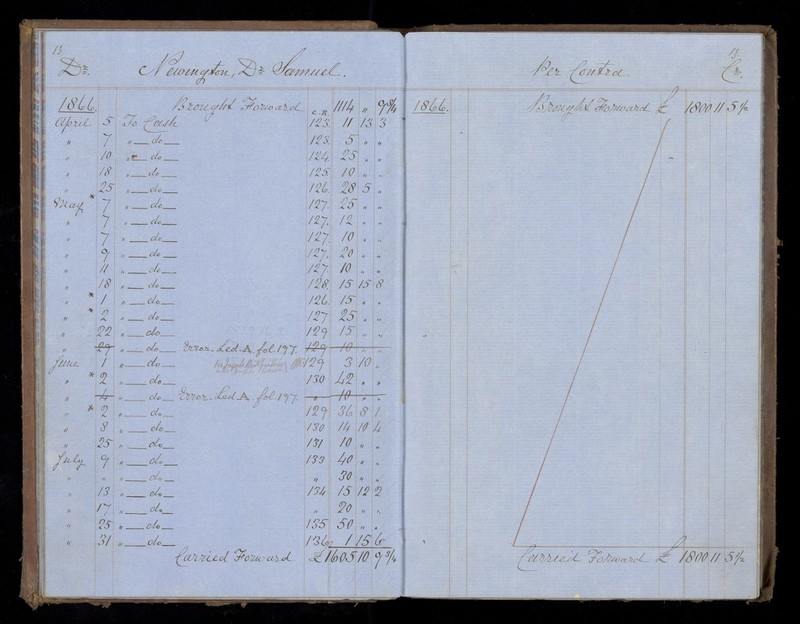 13
Dr. Newington, Dr Samuel.
1866. Brought Forward C.B. 1114 " 9 3/4
April 5 To Cash 123 11 13 3
" 7 " do 123 5 " "
" 10 " do 124 25 " "
" 18 " do 125 10 " "
" 25 " do 126 28 5 "
May * 7 " do 127 25 " "
" 7 " do 127 12 " "
" 7 " do 127 10 " "
" 9 " do 127 20 " "
" 11 " do 127 10 " "
" 18 " do 128 15 15 8
" * 1 " do 126 15 " "
" * 2 " do 127 25 " "
" 22 " do 129 15 " "
" 29 " do Error. Led. A. fol. 197. 129 10 " "
June 1 " do 129 3 10 "
" * 2 " do 130 42 " "
" 4 " do Error. Led. A. fol. 197. " 10 " "
" * 2 " do 129 36 8 1
" 8 " do 130 14 10 4
" 25 " do 131 10 " "
July 9 " do 133 40 " "
" " " do " 30 " "
" 13 " do 134 15 12 2
" 17 " do " 20 " "
" 25 " do 135 50 " "
" 31 " do 136 1 15 6
Carried Forward £ 1605 10 9 3/4
13
Per Contra Cr.
1866. Brought Forward £ 1800 11 5 1/2
Carried Forward £ 1800 11 5 1/2